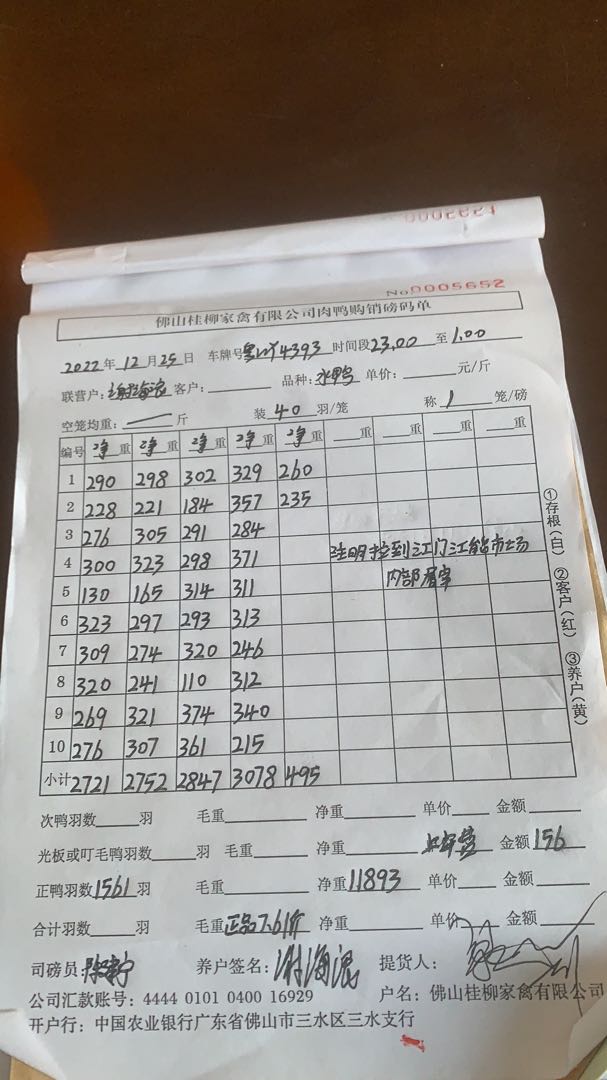 No 0005652
佛山桂柳家禽有限公司肉鸭购销磅码单
2022年 12月 25日 车牌号 4393 时间段 23.00 至 1.00
联营户: 谢海浪 客户: 品种: 水鸭 单价: 元/斤
空笼均重: 一 斤 装 40 羽/笼 称 1 笼/磅
编号 净重 净重 净重 净重 净重 重 重 重 重
1 290 298 302 329 260
2 228 221 184 357 235
3 276 305 291 284
4 300 323 298 371 注明拉到江门江 市场
5 130 165 314 311 内部屠宰
6 323 297 293 313
7 309 274 320 246
8 320 241 110 312
9 269 321 374 340
10 276 307 361 215
小计 2721 2752 2847 3078 495
次鸭羽数 羽 毛重 净重 单价 金额
光板或叮毛鸭羽数 羽 毛重 净重 金额 156
正鸭羽数 1561 羽 毛重 净重 11893 单价 金额
合计羽数 羽 毛重 正品7.6斤 净重 单价 金额
司磅员: 养户签名: 谢海浪 提货人:
公司汇款账号: 4444 0101 0400 16929 户名: 佛山桂柳家禽有限公司
开户行: 中国农业银行广东省佛山市三水区三水支行
①存根(白) ②客户(红) ③养户(黄)